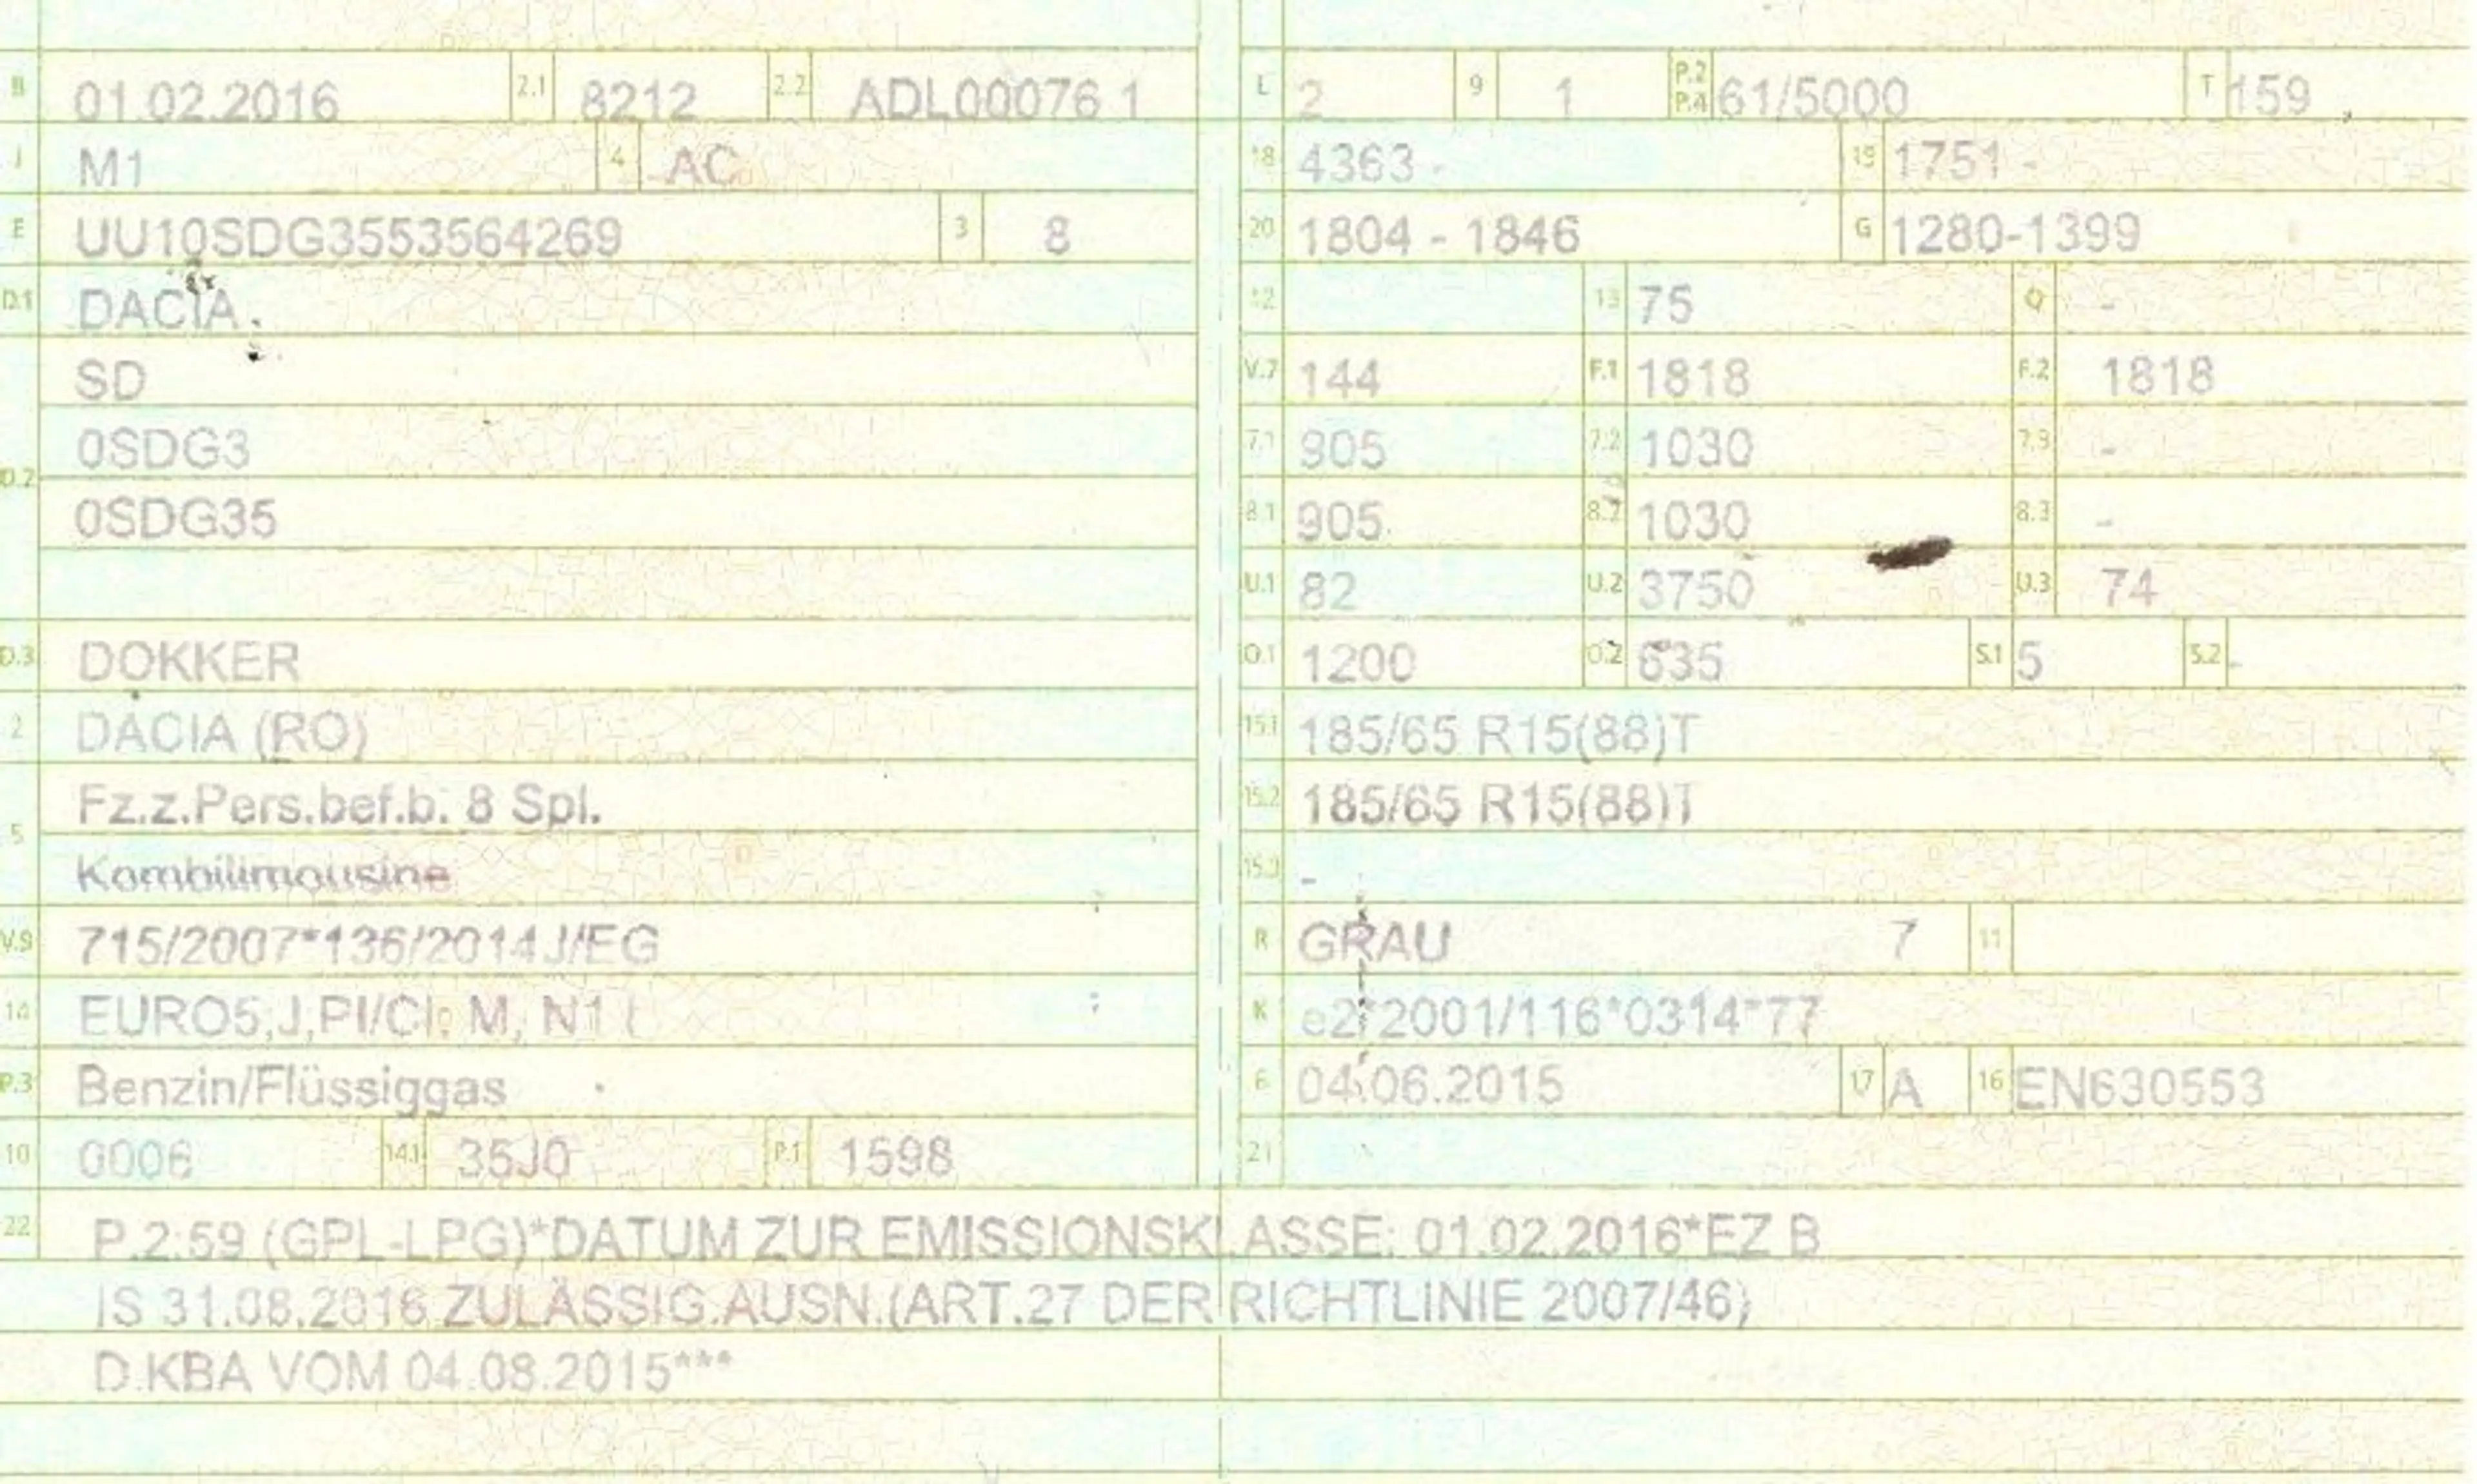 B 01.02.2016 2.1 8212 2.2 ADL00076 1
J M1 4 AC
E UU10SDG3553564269 3 8
D.1 DACIA
SD
0SDG3
D.2
0SDG35
D.3 DOKKER
2 DACIA (RO)
Fz.z.Pers.bef.b. 8 Spl.
5
Kombilimousine
V.9 715/2007*136/2014J/EG
14 EURO5,J,PI/CI: M, N1 I
P.3 Benzin/Flüssiggas
10 0006 14.1 35J0 P.1 1598
L 2 9 1 P.2 P.4 61/5000 T 159
18 4363 - 19 1751 -
20 1804 - 1846 G 1280-1399
12 13 75 Q -
V.7 144 F.1 1818 F.2 1818
7.1 905 7.2 1030 7.3 -
8.1 905 8.2 1030 8.3 -
U.1 82 U.2 3750 U.3 74
O.1 1200 O.2 635 S.1 5 S.2 -
15.1 185/65 R15(88)T
15.2 185/65 R15(88)T
15.3 -
R GRAU 7 11
K e2*2001/116*0314*77
6 04.06.2015 17 A 16 EN630553
21
22 P.2:59 (GPL-LPG)*DATUM ZUR EMISSIONSKLASSE: 01.02.2016*EZ B
IS 31.08.2016 ZULÄSSIG.AUSN.(ART.27 DER RICHTLINIE 2007/46)
D.KBA VOM 04.08.2015***